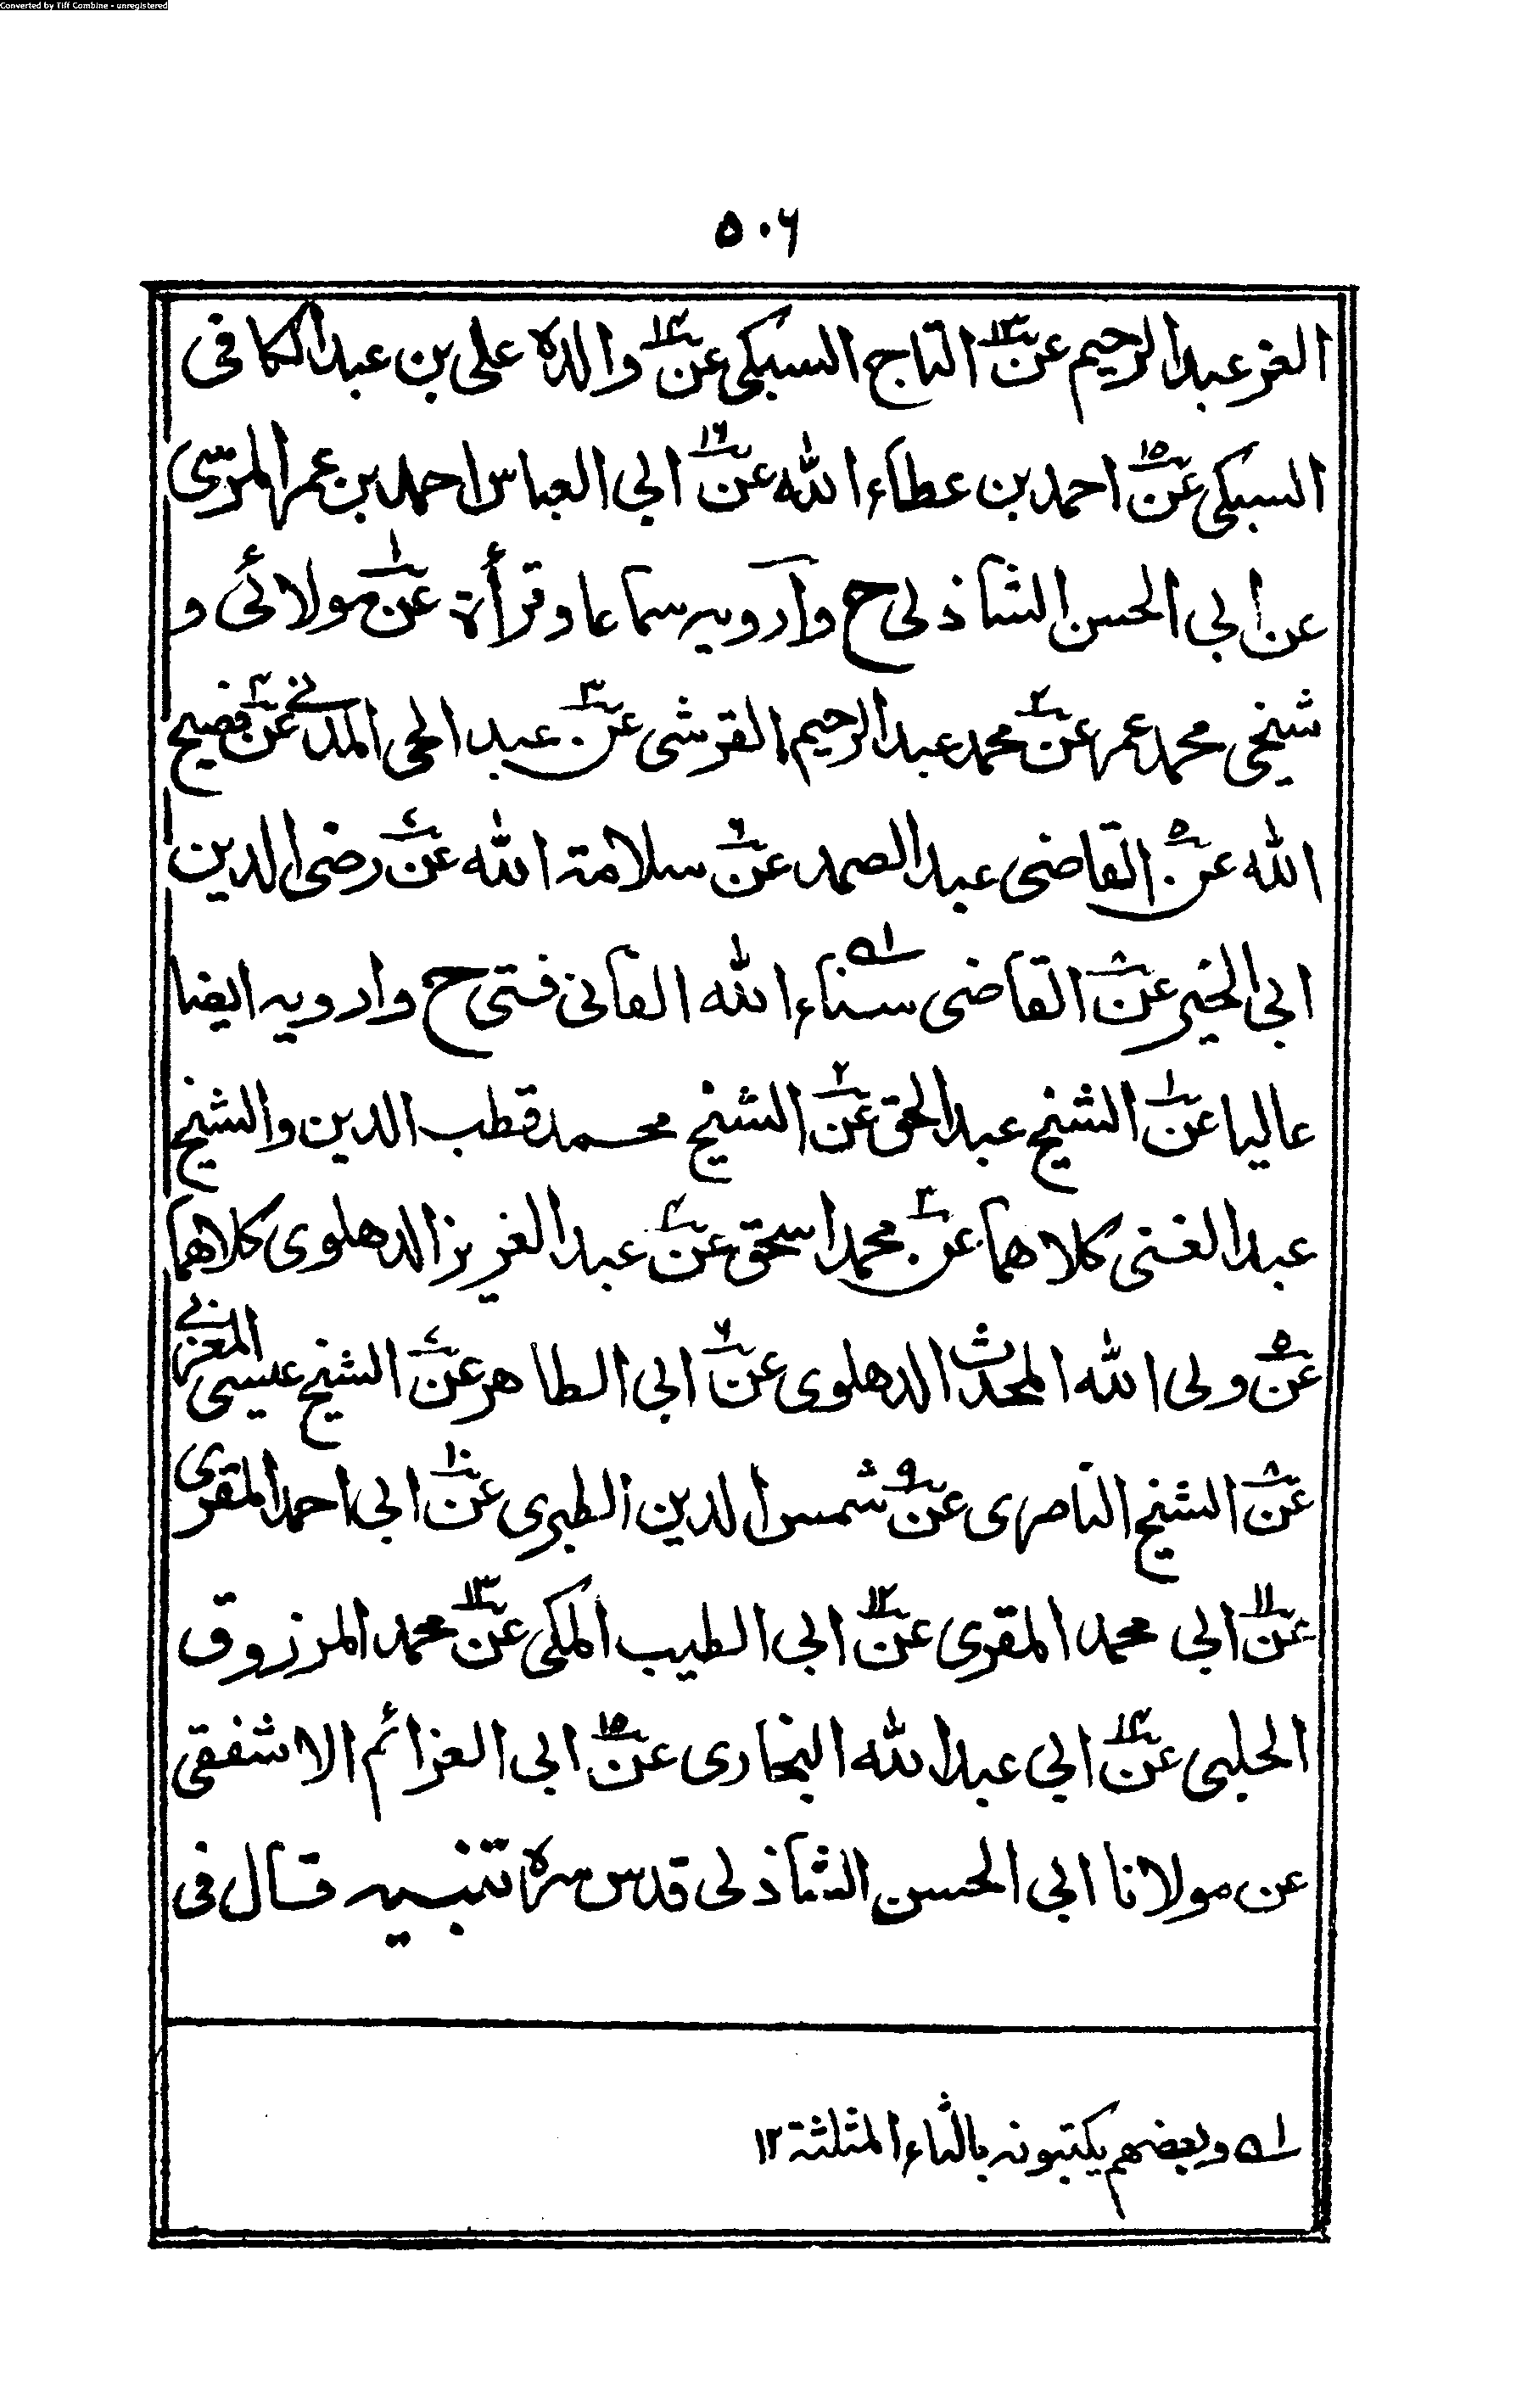 Converted by Tiff Combine - unregistered
٥٠٦
العز عبد الرحيم عن١٣ التاج السبكى عن١٤ والده على بن عبد الكافى
السبكى عن١٥ احمد بن عطاء الله عن١٦ ابى العباس احمد بن عمر المرسى
عن ابى الحسن الشاذلى ح وآرويه سماعا وقرأة عن١ مولائى و
شيخى محمد عمر عن٢ محمد عبد الرحيم القرشى عن٣ عبد الحى المدنى عن٤ فصيح
الله عن٥ القاضى عبد الصمد عن٦ سلامة الله عن٧ رضى الدين
ابى الخير عن٨ القاضى سناء الله الفانى فتى ح وارويه ايضا
عاليا عن١ الشيخ عبد الحق عن٢ الشيخ محمد قطب الدين والشيخ
عبد الغنى كلاهما عن٣ محمد اسحق عن٤ عبد العزيز الدهلوى كلاهما
عن٥ ولى الله المحدث الدهلوى عن٦ ابى الطاهر عن٧ الشيخ عيسى المغربى
عن٨ الشيخ الناصرى عن٩ شمس الدين الطبرى عن١٠ ابى احمد المقرى
عن١١ ابى محمد المقرى عن١٢ ابى الطيب المكى عن١٣ محمد المرزوق
الحلبى عن١٤ ابى عبد الله البخارى عن١٥ ابى العزائم الاشفقى
عن مولانا ابى الحسن الشاذلى قدس سره تنبيه قال فى
١ه وبعضهم يكتبونه بالثاء المثلثة ١٢